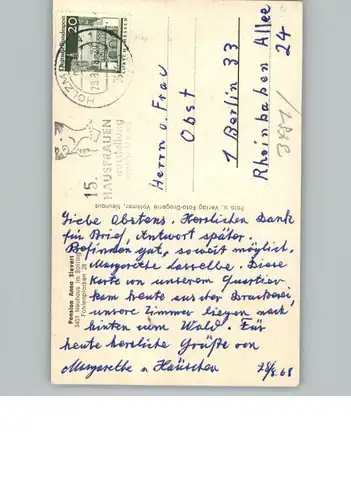 Deutsche Bundespost
20
HOLZM
15.
HAUSFRAUEN
ausstellung
Herrn u. Frau
Obst
1 Berlin 33
Rheinbaben Allee
24
Foto u. Verlag Foto-Drogerie Vollmer, Neuhaus
Pension Anna Sievert
3451 Neuhaus im Solling
Liebe Obstens. Herzlichen Dank
für Brief, Antwort später.
Befinden gut, soweit möglich.
Margarethe dasselbe. Diese
Karte von unserem Quartier
kam heute aus der Druckerei
unsere Zimmer liegen nach
hinten zum Wald. Für
heute herzliche Grüße von
Margarethe u Hänschen 28/8.68